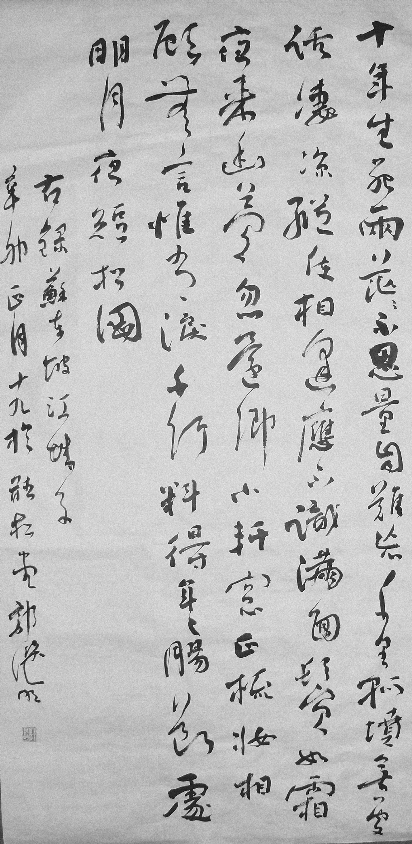 十年生死兩茫〻不思量自難忘千里孤墳無處
話淒涼縱使相逢應不識滿面鬢如霜
夜來幽夢忽還鄉小軒窗正梳妝相
顧無言惟有淚千行料得年〻腸斷處
明月夜短松岡
右錄蘇東坡江城子
辛卯正月十九於松堂郭